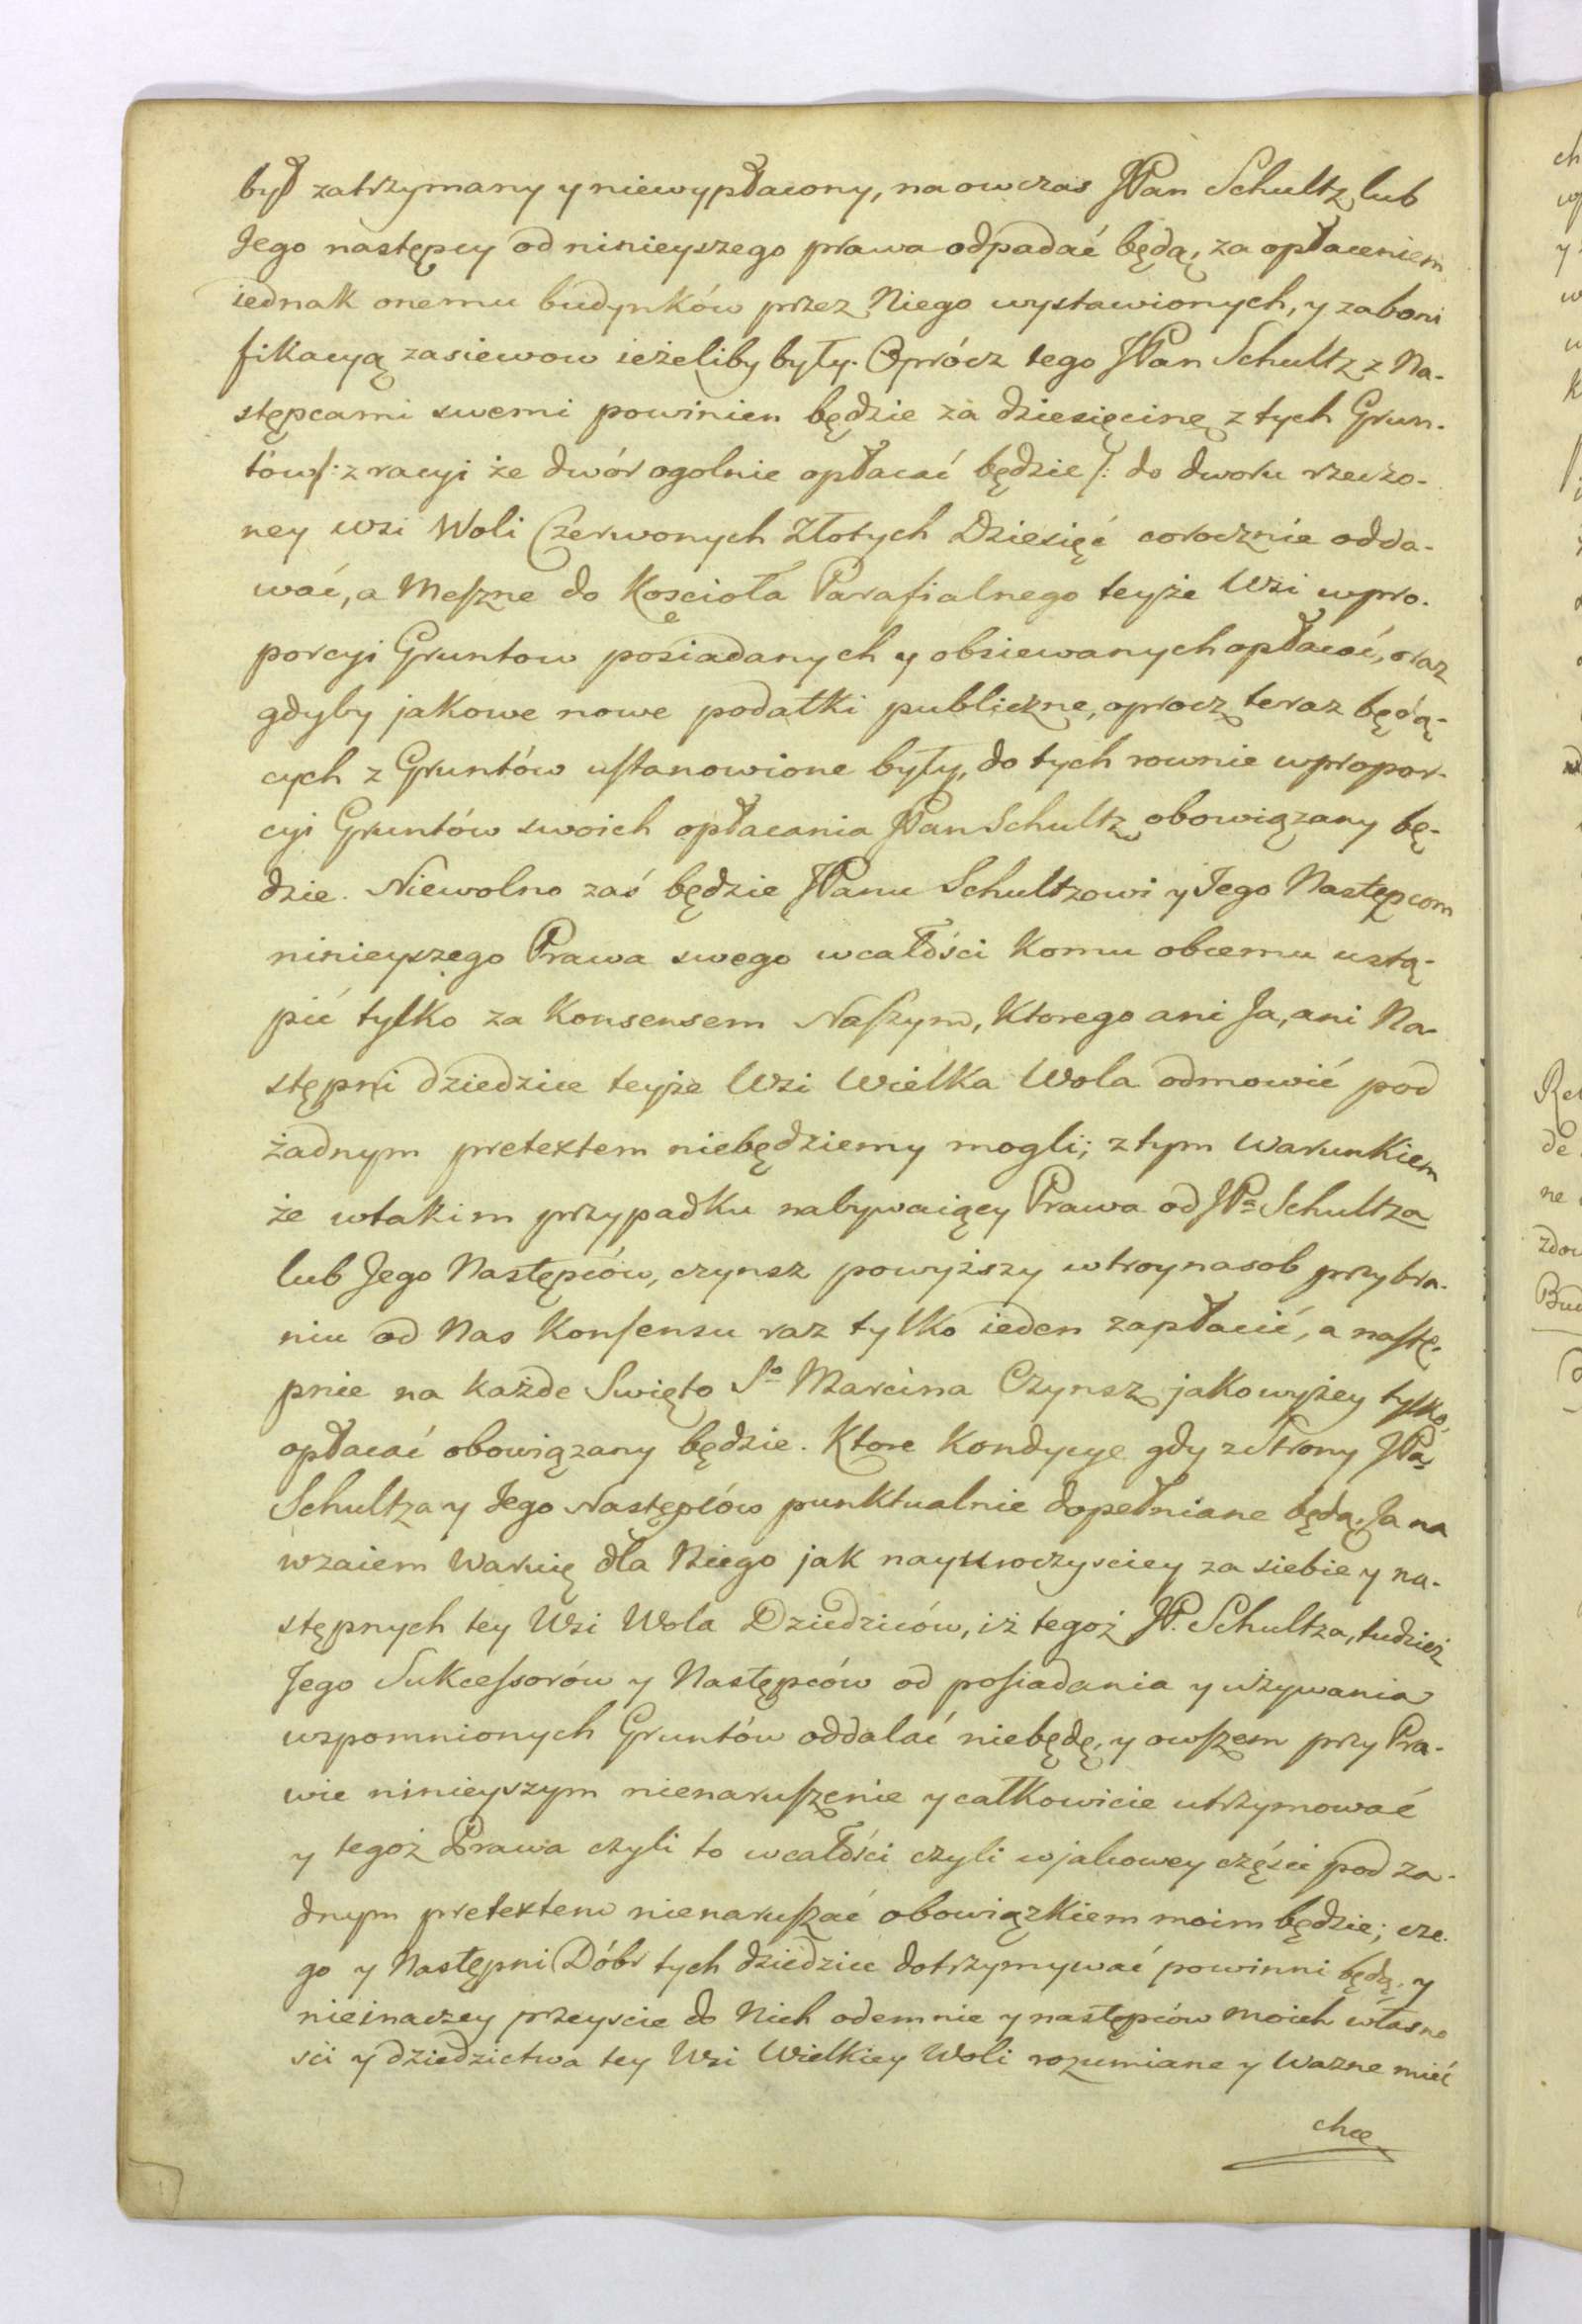 był zatrzymany y niewypłacony, na owczas JPan Schultz lub
Jego następcy od ninieyszego prawa odpadać będą, za opłaceniem
iednak onemu budynków przez Niego wystawionych, y zaboni
fikacyą zasiewow ieżeliby były. Oprócz tego JPan Schultz z Na-
stępcami swemi powinien będzie za dziesięcinę z tych Grun-
tów /: z racyi że dwór ogolnie opłacać będzie /: do dworu rzeczo-
ney wsi Woli Czerwonych Złotych Dziesięć corocznie odda-
wać, a Meszne do Kościoła Parafialnego teyże Wsi wpro-
porcyi Gruntow posiadanych y obsiewanych opłacać, oraz
gdyby jakowe nowe podatki publiczne, oprocz teraz będą-
cych z Gruntów ustanowione były, do tych rownie wpropor-
cyi Gruntów swoich opłacania JPan Schultz obowiązany bę-
dzie. Niewolno zaś będzie JPanu Schultzowi y Jego Następcom
ninieyszego Prawa swego wcałości komu obcemu ustą-
pić tylko za Konsensem Naszym, Ktorego ani Ja, ani Na-
stępni dziedzice teyże Wsi Wielka Wola odmowić pod
żadnym pretextem niebędziemy mogli; z tym Warunkiem
że wtakim przypadku nabywaiący Prawa od JPa Schultza
lub Jego Następców, czynsz powyższy wtroynasob przy bra-
niu od Nas Konsensu raz tylko ieden zapłacić, a nastę-
pnie na każde Swięto So Marcina Czynsz jako wyżey tylko,
opłacać obowiązany będzie. Ktore Kondycye gdy zstrony JPa
Schultza y Jego Następców punktualnie dopełniane będą, Ja na
wzaiem Waruię dla Niego jak nayuroczysciey za siebie y na-
stępnych tey Wsi Wola Dziedziców, iż tegoż JP. Schultza, tudzież
Jego Sukcessorów y Następców od posiadania y używania
wspomnionych Gruntów oddalać niebędę, y owszem przy Pra-
wie ninieyszym nienaruszenie y całkowicie utrzymować
y tegoż Prawa czyli to wcałości czyli wjakowey części pod ża-
dnym pretextem nienaruszać obowiązkiem moim będzie; cze-
go y Następni Dóbr tych dziedzice dotrzymywać powinni będą, y
nieinaczey przeyscie do Nich odemnie y następców moich własno
sci y dziedzictwa tey Wsi Wielkiey Woli rozumiane y ważne mieć
chcę